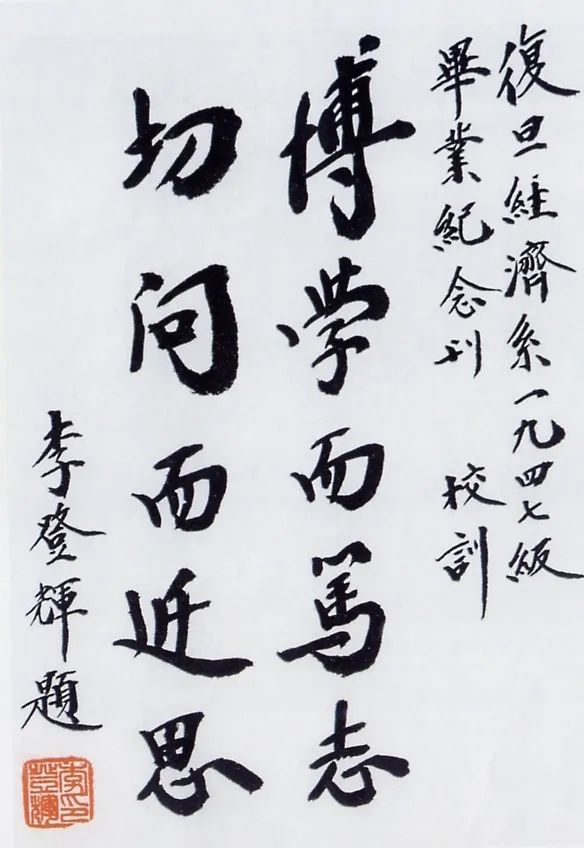 復旦經濟系一九四七級
畢業紀念刋 校訓
博学而篤志
切问而近思
李登輝題
李登輝印